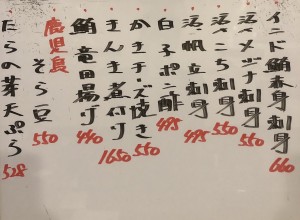 インド鮪赤身刺身 660
活〆メジナ刺身 550
活〆こち刺身 550
活帆立刺身 495
白子ポン酢 495
かきチーズ焼き 550
きんき煮付け 1650
鮪竜田揚げ 440
鹿児島 そら豆 550
たらの芽天ぷら 528